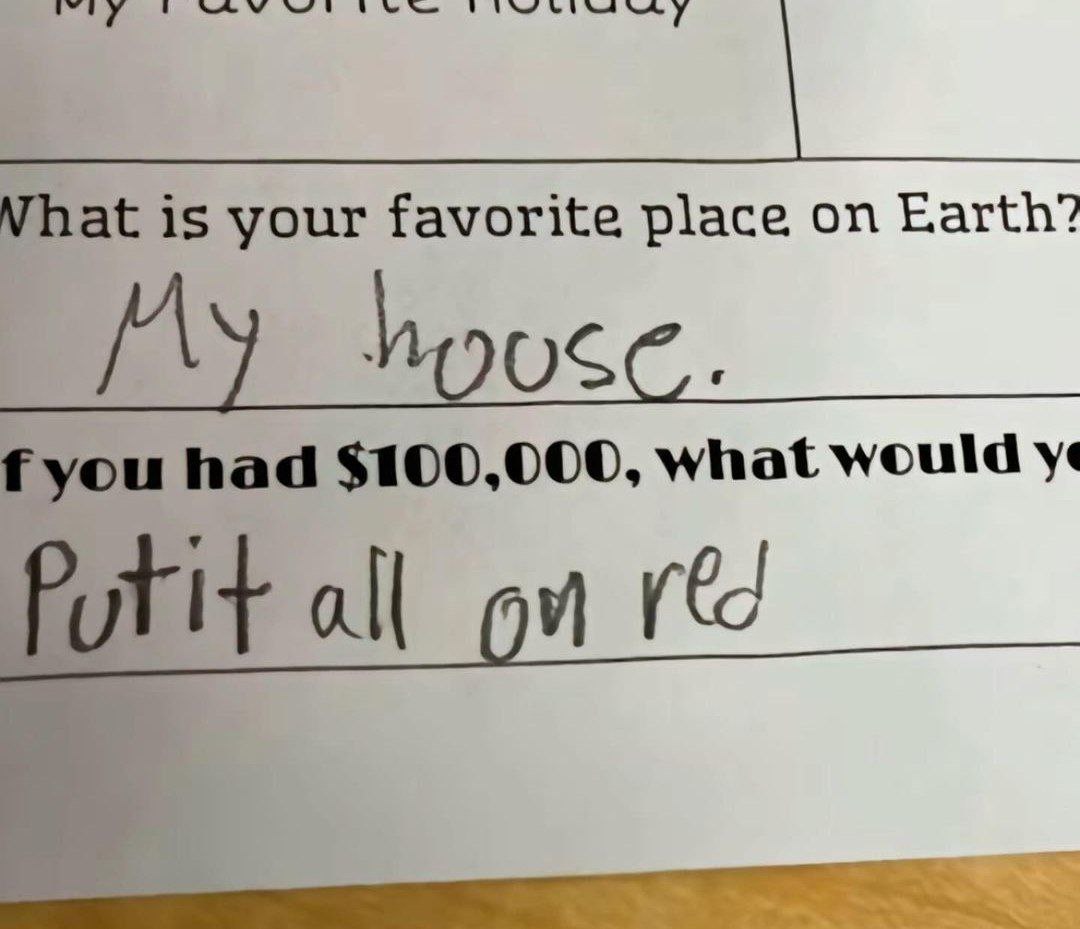 My Favorite Holiday
What is your favorite place on Earth?
My house.
f you had $100,000, what would yo
Put it all on red